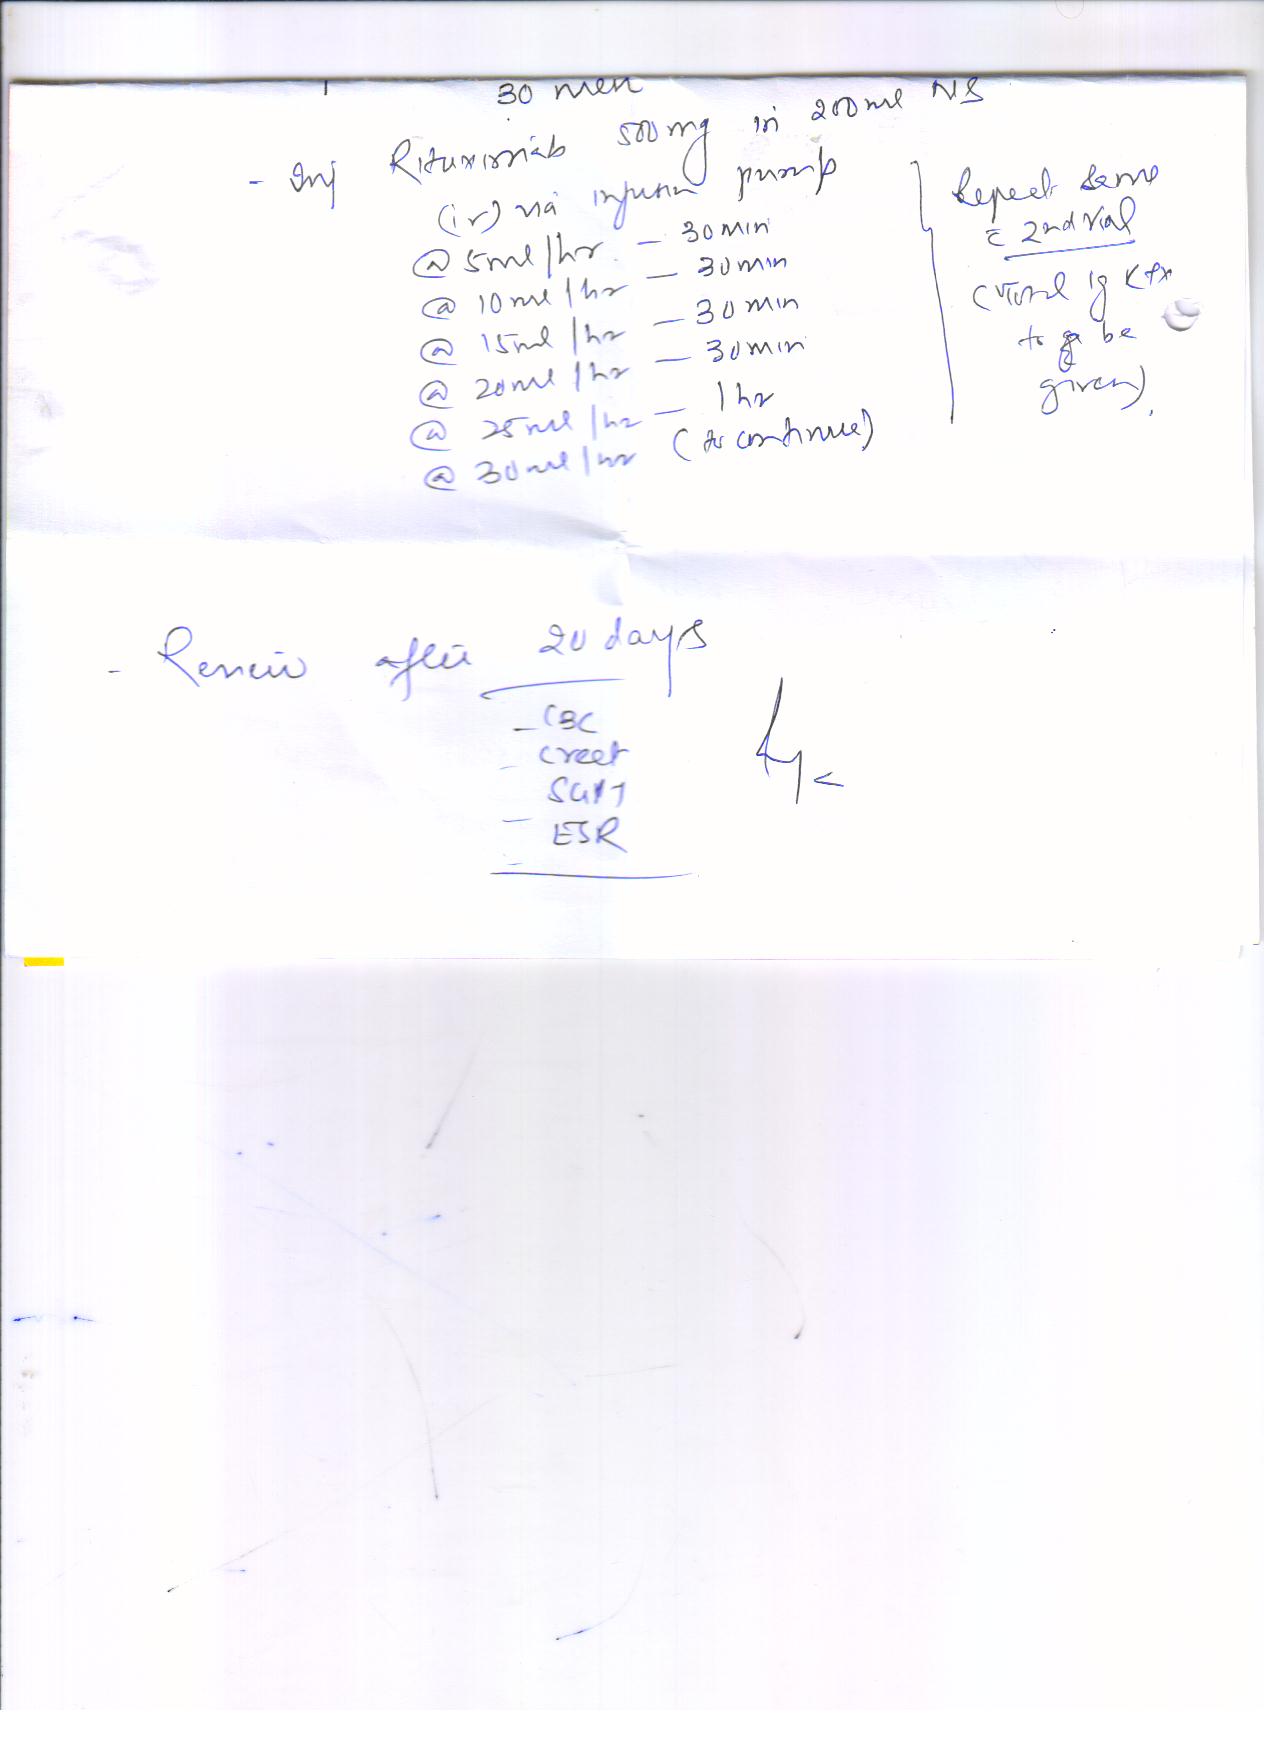 30 min
- Inj Rituximab 500 mg in 200 ml NS
(iv) via infusion pump
@ 5ml/hr. — 30 min
@ 10 ml/hr — 30 min
@ 15ml/hr — 30 min
@ 20ml/hr — 30 min
@ 25 ml/hr — 1 hr
@ 30 ml/hr (to continue)
Repeat same
c̄ 2nd vial
(Total 1g
to be
given).
- Review after 20 days
- CBC
- Creat
- SGPT
- ESR